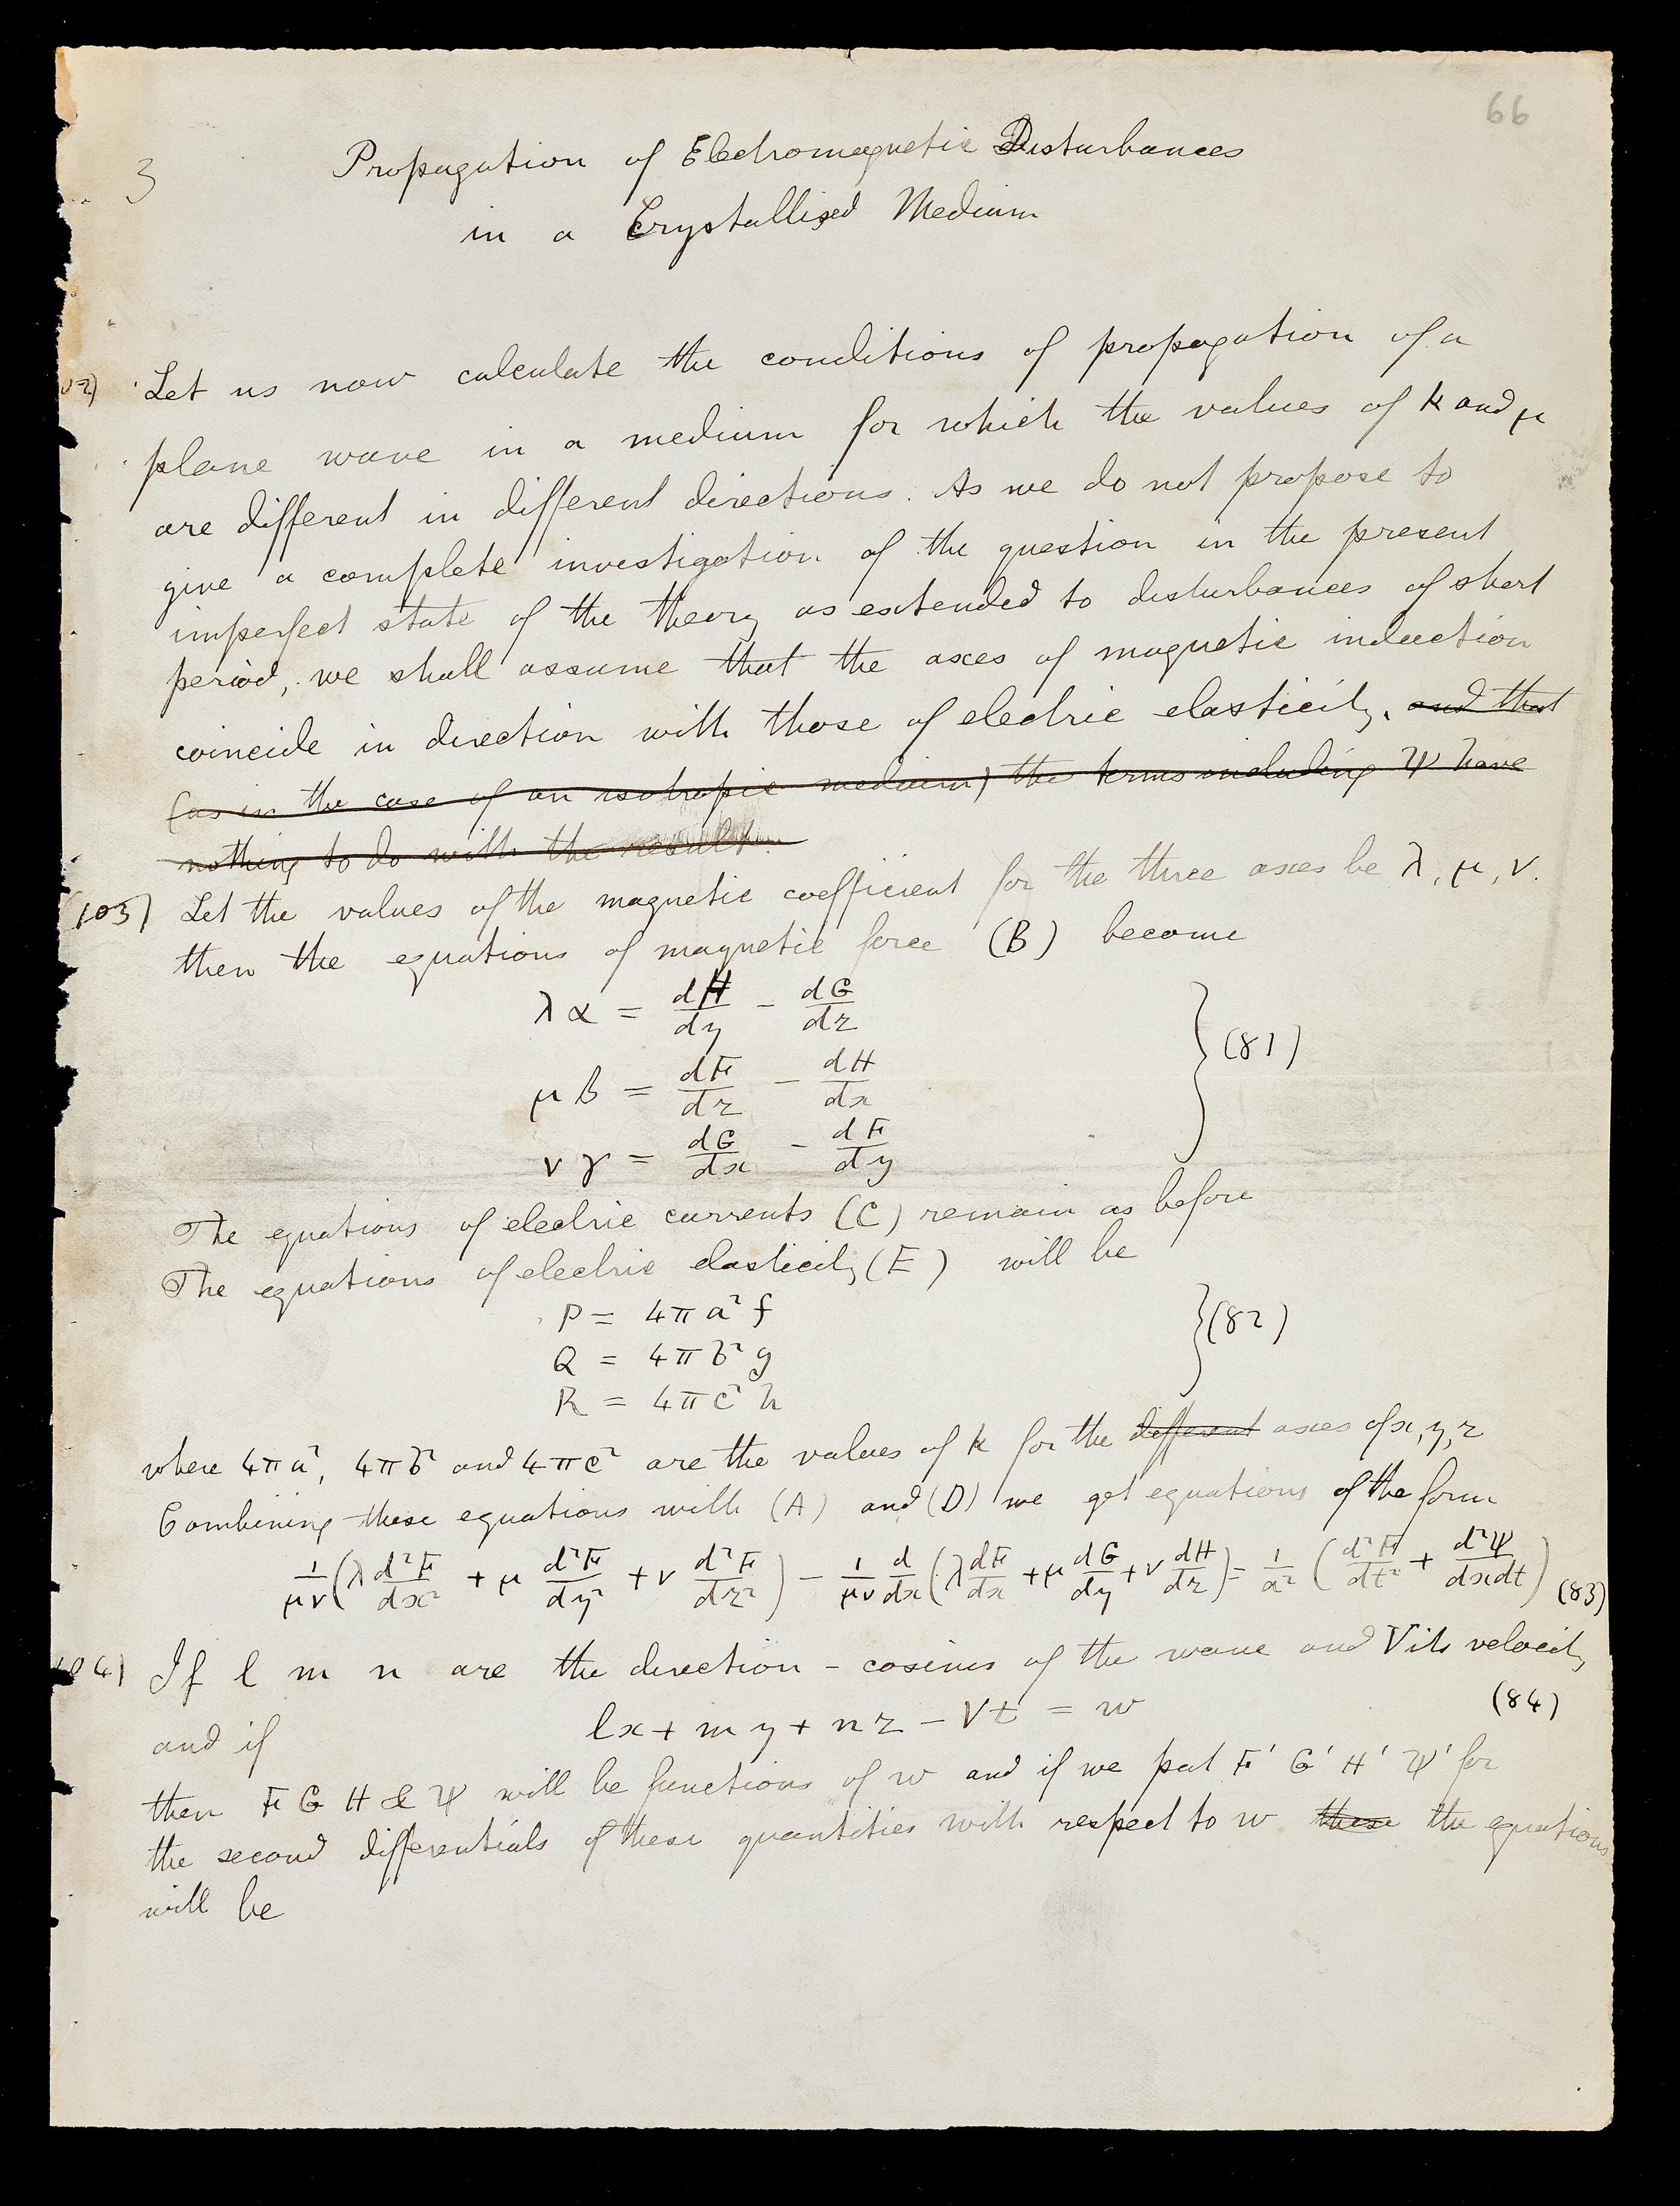 66
3
Propagation of Electromagnetic Disturbances
in a Crystallized Medium
02) Let us now calculate the conditions of propagation of a
plane wave in a medium for which the values of k and μ
are different in different directions. As we do not propose to
give a complete investigation of the question in the present
imperfect state of the theory as extended to disturbances of short
period, we shall assume that the axes of magnetic induction
coincide in direction with those of electric elasticity. and that
(as in the case of an isotropic medium) the terms including Ψ have
nothing to do with the result.
(103) Let the values of the magnetic coefficient for the three axes be λ, μ, ν.
then the equations of magnetic force (B) become
λα = dH/dy − dG/dz
μβ = dF/dz − dH/dx } (81)
νγ = dG/dx − dF/dy
The equations of electric currents (C) remain as before
The equations of electric elasticity (E) will be
P = 4πa²f
Q = 4πb²g } (82)
R = 4πc²h
where 4πa², 4πb² and 4πc² are the values of k for the different axes of x, y, z
Combining these equations with (A) and (D) we get equations of the form
1/μν (λ d²F/dx² + μ d²F/dy² + ν d²F/dz²) − 1/μν d/dx (λ dF/dx + μ dG/dy + ν dH/dz) = 1/a² (d²F/dt² + d²Ψ/dxdt) (83)
04) If l m n are the direction-cosines of the wave and V its velocity
and if lx + my + nz − Vt = w (84)
then F G H & Ψ will be functions of w and if we put F' G' H' Ψ' for
the second differentials of these quantities with respect to w these the equations
will be